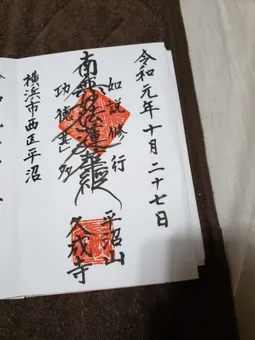 令和元年十月二十七日
如説修行 平沼山
南無妙法蓮華経 久成寺
功徳甚多
横浜市西区平沼